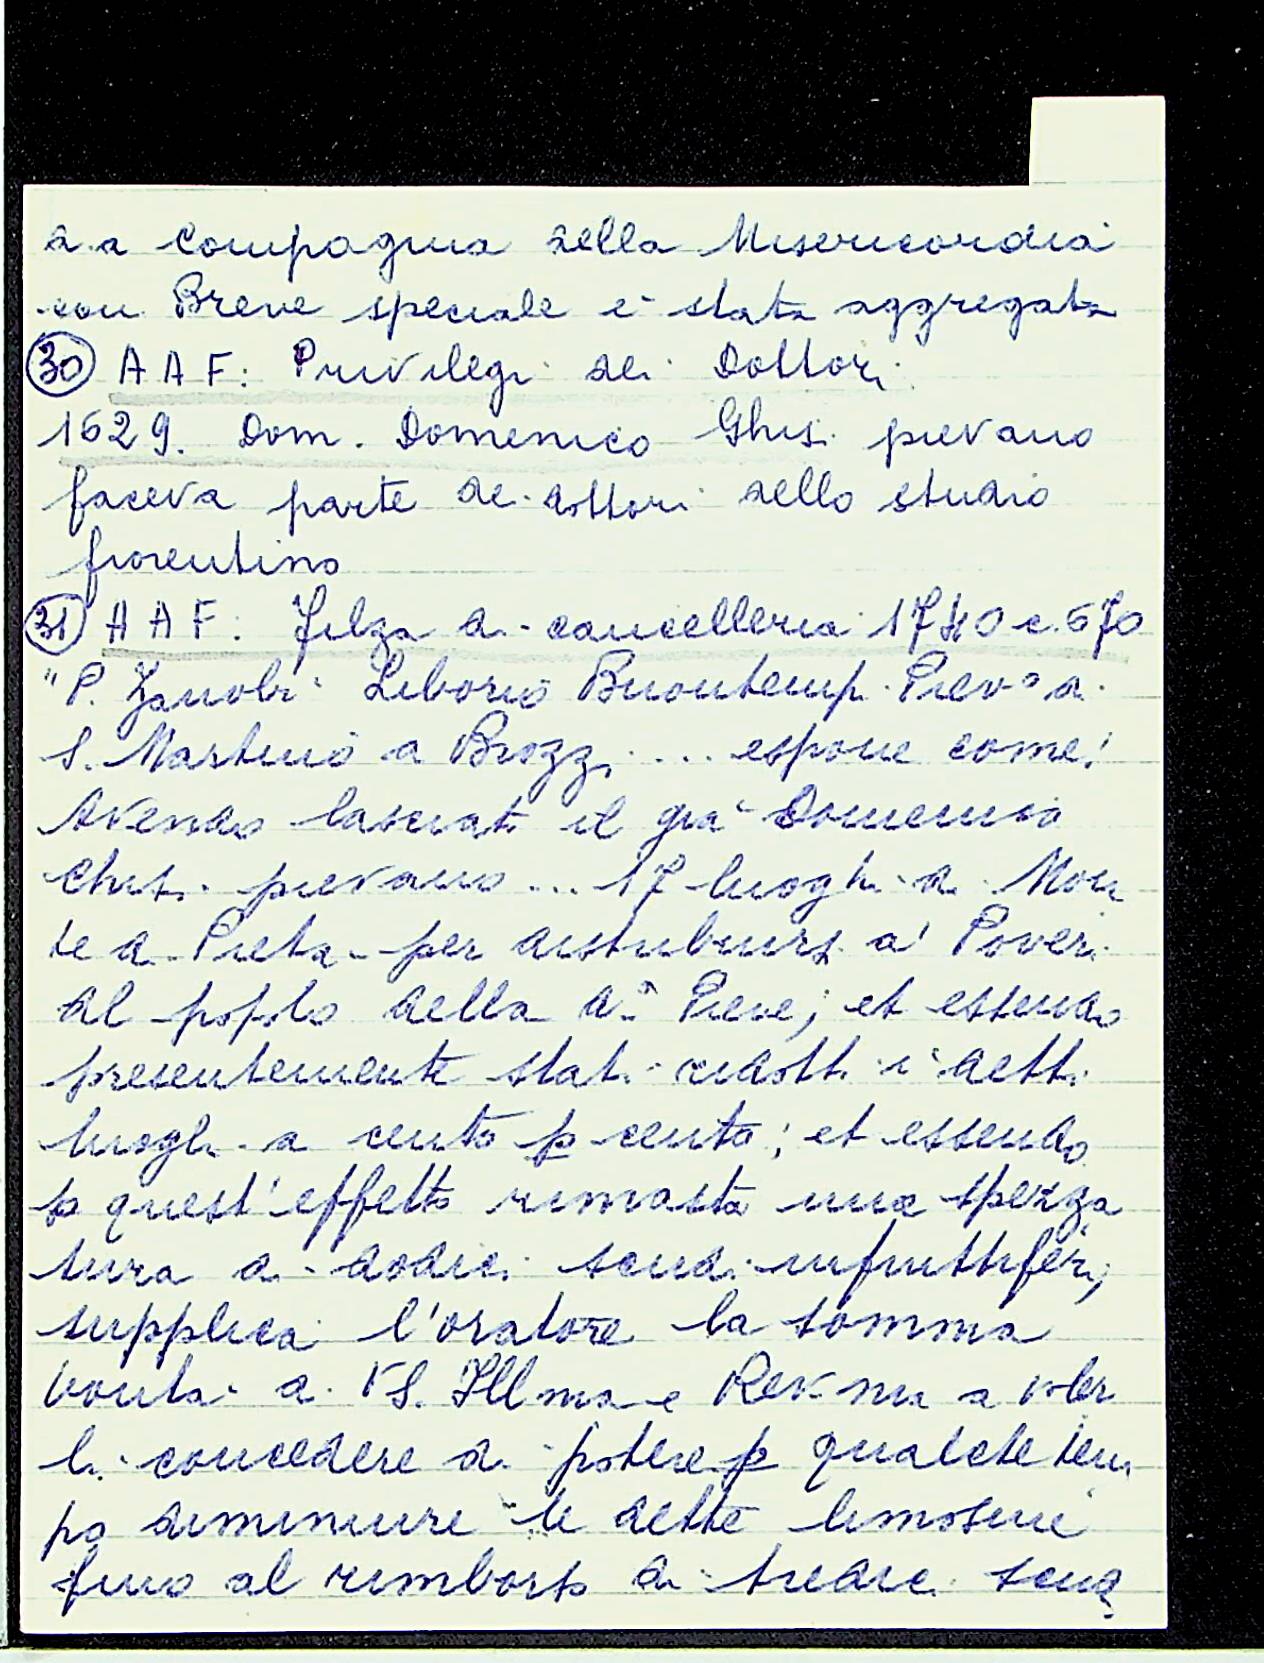 d.a Compagnia della Misericordia
con Breve speciale è stata aggregata
30 A A F: Privilegi dei Dottori
1629. Dom. Domenico Ghisi pievano
faceva parte dei dottori dello studio
fiorentino
31 A A F: Filza di cancelleria 1740 c. 670
"P. Zanobi Liborio Buontempi Piev.º di
S. Martino a Brozzi ... espone come:
Avendo lasciati il già Domenico
Ghisi pievano ... 17 luoghi di Mon
te di Pietà per distribuirsi a' Poveri
al popolo della d.ª Pieve; et essendo
presentemente stati ridotti i detti
luoghi a cento p cento; et essendo
p quest'effetto rimasta una spezza
tura di dodici scudi infruttiferi,
supplica l'oratore la somma
bontà di VS. Illma e Rev.ma a voler
li concedere di potere p qualche tem
po diminuire le dette limosine
fino al rimborso di tredici scudi